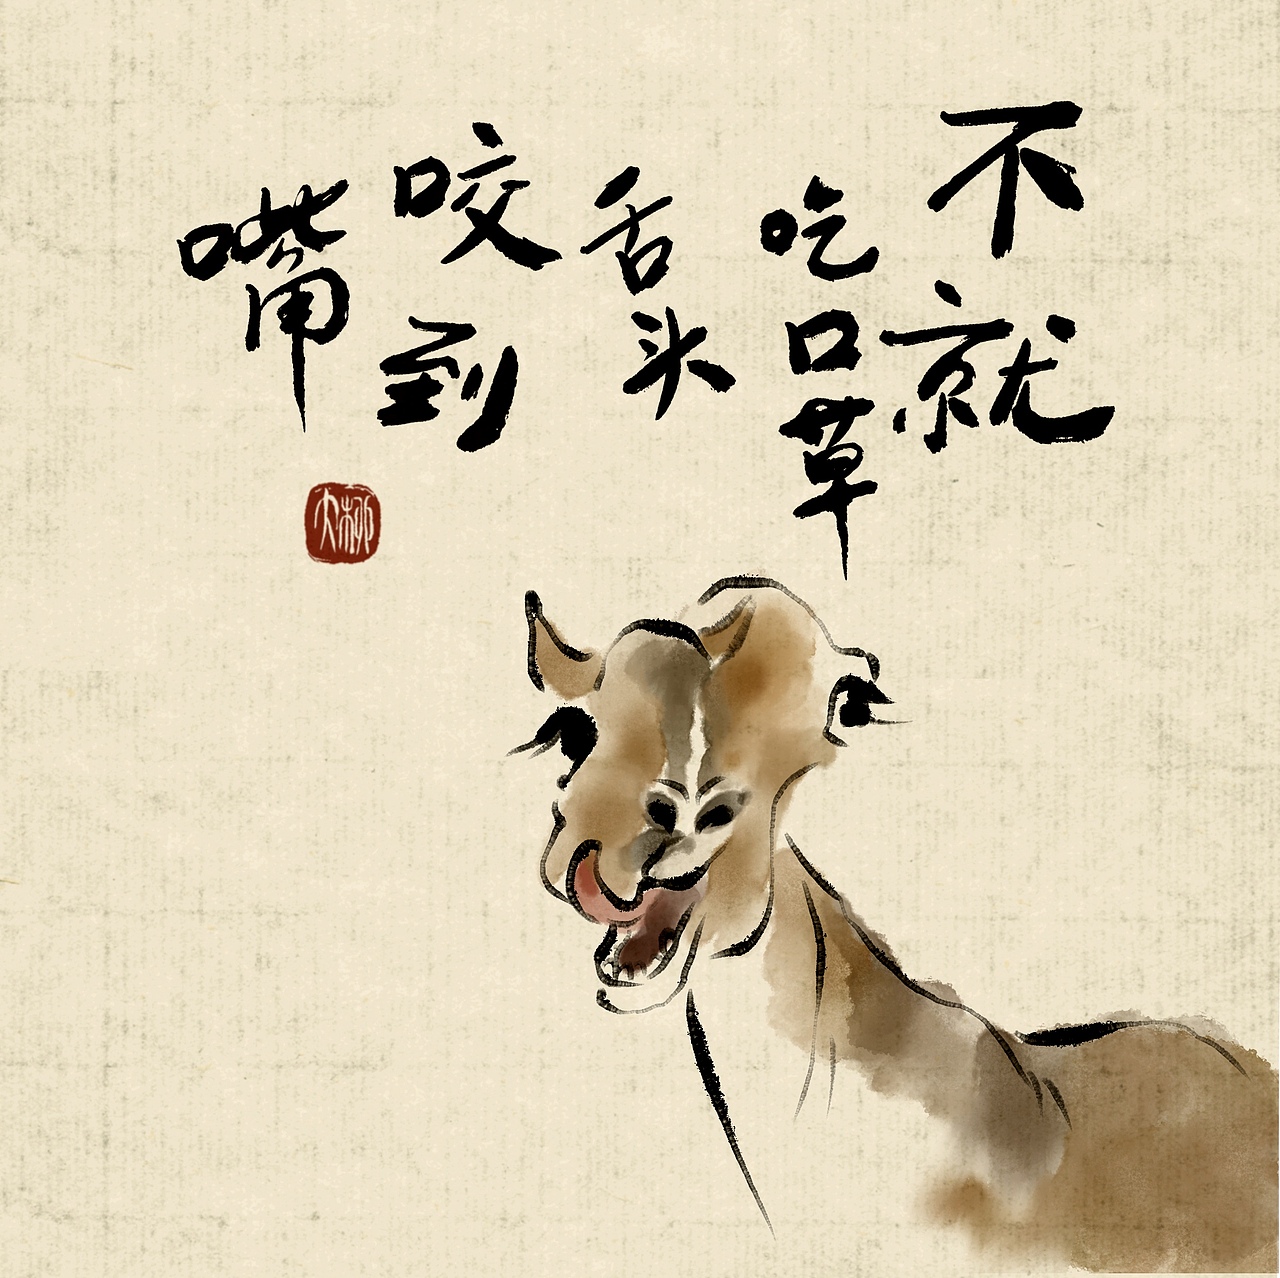 不就
吃口草
舌头
咬到
嘴